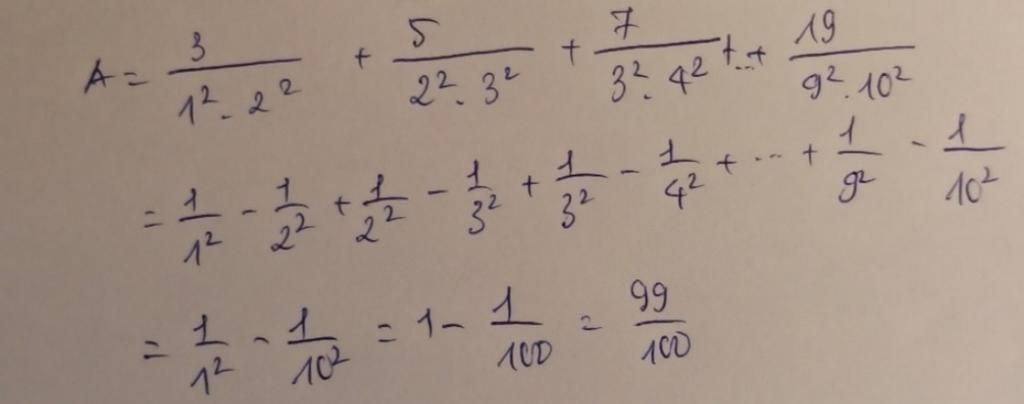 A = 3/(1² . 2²) + 5/(2² . 3²) + 7/(3² . 4²) + ... + 19/(9² . 10²)
= 1/1² - 1/2² + 1/2² - 1/3² + 1/3² - 1/4² + ... + 1/9² - 1/10²
= 1/1² - 1/10² = 1 - 1/100 = 99/100